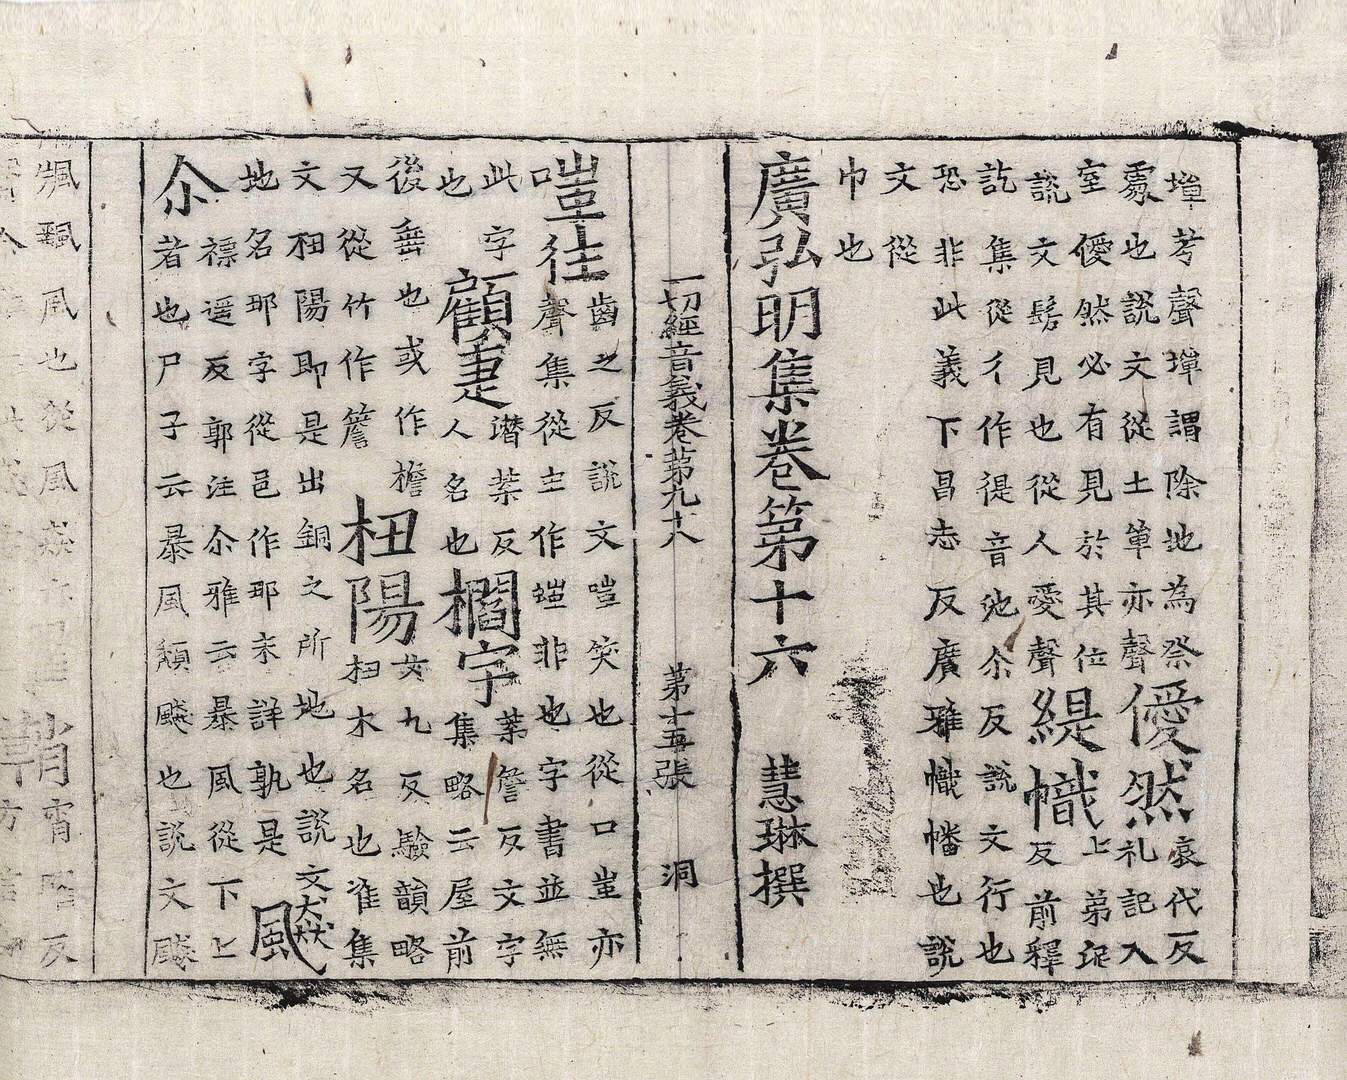 墠考聲墠謂除地為祭
處也說文從土單亦聲
僾然
哀代反
礼記入
室僾然必有見於其位
說文髣見也從人愛聲
緹幟
上弟泥
反前釋
訖集從彳作徥音池尒反說文行也
恐非此義下昌志反廣雅幟幡也說
文從
巾也
廣弘明集卷第十六 慧琳撰
一切經音義卷第九十八 第十五張 洞
嗤往
齒之反說文嗤笑也從口蚩亦
聲集從土作非也字書並無
此字
也
顧疌
潛葉反
人名也
櫩字
葉簷反文字
集略云屋前
後垂也或作檐
又從竹作簷
杻陽
女九反驗韻略
杻木名也隹集
文杻陽即是出銅之所地也說文
地名耶字從邑作耶未詳孰是
飈
尒
褾遥反郭注尒雅云暴風從下上
者也尸子云暴風頹飈也說文飈
風也從風猋
宵曜反